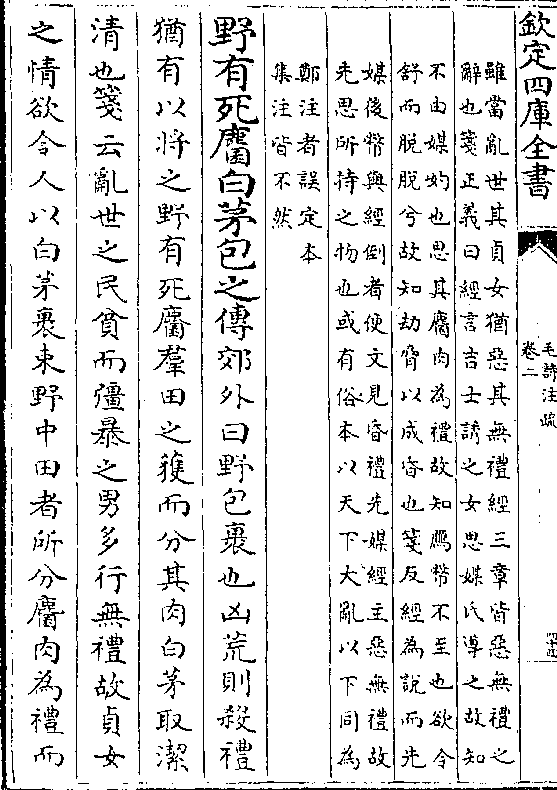 欽定四庫全書
毛詩注疏
卷二
雖當亂世其貞女猶惡其無禮經三章皆惡無禮之
辭也箋正義曰經言吉士誘之女思媒氏導之故知
不由媒妁也思其麕肉為禮故知鴈幣不至也欲令
舒而脫脫兮故知劫脅以成昏也箋反經為說而先
媒後幣與經倒者便文見昏禮先媒經主惡無禮故
先思所持之物也或有俗本以天下大亂以下同為
鄭注者誤定本
集注皆不然
野有死麕白茅包之傳郊外曰野包裹也凶荒則殺禮
猶有以將之野有死麕羣田之獲而分其肉白茅取潔
清也箋云亂世之民貧而彊暴之男多行無禮故貞女
之情欲令人以白茅裹束野中田者所分麕肉為禮而